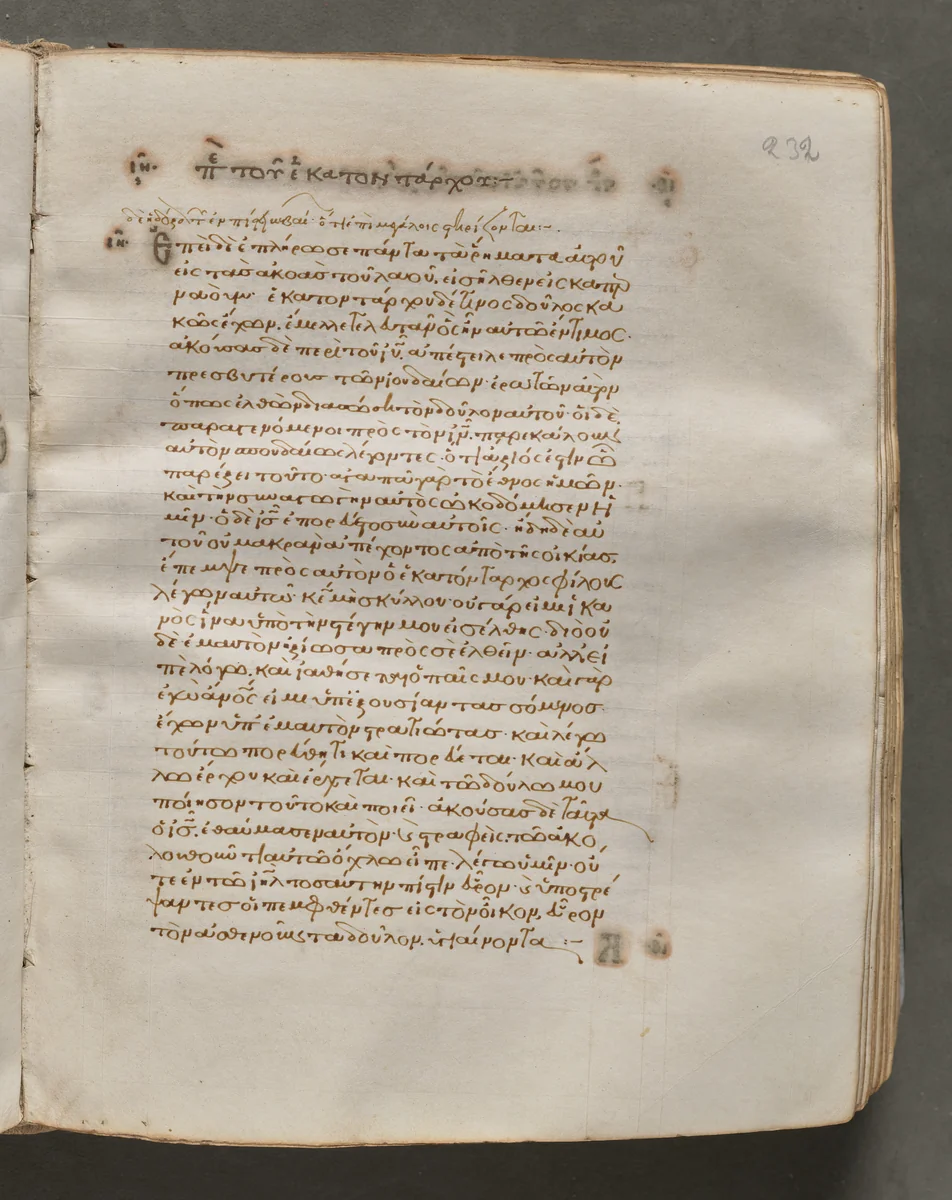 232
ιη
περὶ τοῦ ἑκατοντάρχου:~
ιη
Ἐπεὶ δὲ ἐπλήρωσε πάντα τὰ ῥήματα αὐτοῦ
εἰς τὰσ ἀκοὰσ τοῦ λαοῦ, εἰσῆλθεν εἰς καπερ
ναούμ· ἑκατοντάρχου δέ τινος δοῦλος κα
κῶς ἔχων, ἔμελλε τελευτᾶν ὃς ἦν αὐτῶ ἔντιμος·
ἀκούσασ δὲ περὶ τοῦ ιυ, ἀπέστειλε πρὸς αὐτὸν
πρεσβυτέρουσ τῶν ἰουδαίων· ἐρωτῶν αὐτὸν
ὅπως ἐλθὼν διασώση τὸν δοῦλον αὐτοῦ· οἱ δὲ
παραγενόμενοι πρὸς τὸν ιν, παρεκάλουν
αὐτὸν σπουδαίως λέγοντες· ὅτι ἄξιός ἐστιν ὧ
παρέξει τοῦτο· ἀγαπᾶ γὰρ τὸ ἔθνος ἡμῶν·
καὶ τὴν συναγωγὴν αὐτὸς ὠκοδόμησεν ἡ
μῖν· ὁ δὲ ισ ἐπορεύετο σὺν αὐτοῖς· ἤδη δὲ αὐ
τοῦ οὐ μακρὰν ἀπέχοντος ἀπὸ τῆς οἰκίασ,
ἔπεμψε πρὸς αὐτὸν ὁ ἑκατόνταρχος φίλους
λέγων αὐτῶ· κε μὴ σκύλλου· οὐ γάρ εἰμι ἱκα
νὸς ἵνα ὑπὸ τὴν στέγην μου εἰσέλθης· διὸ οὐ
δὲ ἐμαυτὸν ἠξίωσα πρὸς σὲ ἐλθεῖν· ἀλλ' εἰ
πὲ λόγω, καὶ ἰαθήσεται ὁ παῖς μου· καὶ γὰρ
ἐγὼ ἄνος εἰμι ὑπ' ἐξουσίαν τασσόμενος·
ἔχων ὑπ' ἐμαυτὸν στρατιώτασ· καὶ λέγω
τούτω πορεύθητι καὶ πορεύεται· καὶ ἄλ
λω ἔρχου καὶ ἔρχεται· καὶ τῶ δούλω μου
ποίησον τοῦτο καὶ ποιεῖ· ἀκούσας δὲ ταῦτα
ὁ ισ, ἐθαύμασεν αὐτὸν· καὶ στραφεὶς, τῶ ἀκο
λουθοῦντι αὐτῶ ὄχλω εἶπε· λέγω ὑμῖν· οὔ
τε ἐν τῶ ιηλ τοσαύτην πίστιν εὗρον· καὶ ὑποστρέ
ψαντεσ οἱ πεμφθέντες εἰς τὸν οἶκον, εὗρον
τὸν ἀσθενοῦντα δοῦλον, ὑγιαίνοντα:~